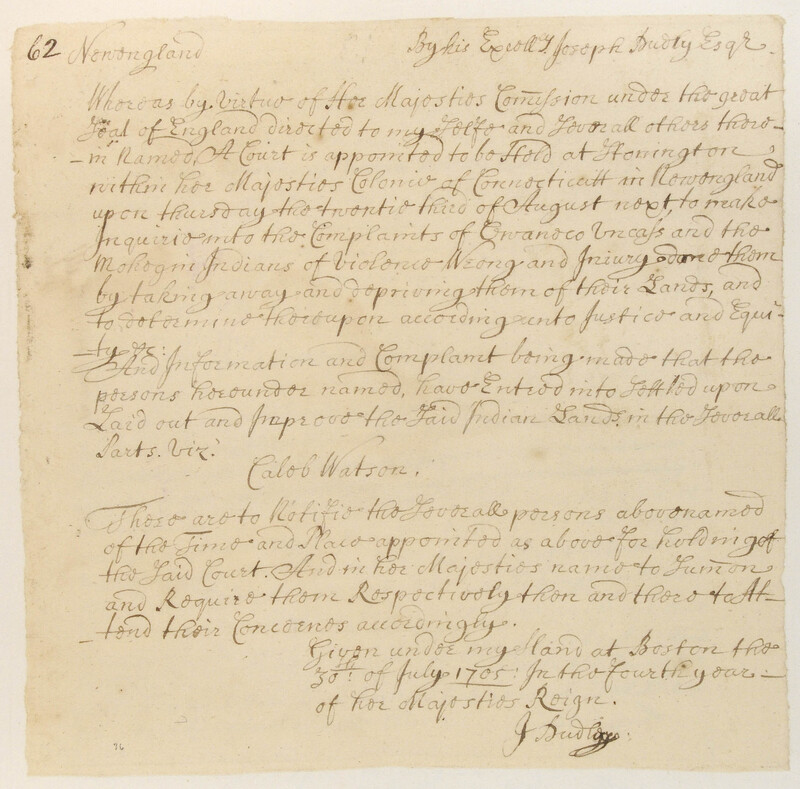 62 Newengland By his Excell.y Joseph Dudly Esqr.
Whereas by Virtue of Her Majesties Com̄ission under the great
Seal of England directed to my Selfe and Severall others there-
-in Named, A Court is appointed to be Held at Stonington
within her Majesties Colonie of Connecticutt in Newengland
upon thursday the twentie third of August next, to make
Inquirie into the Complaints of Owaneco Uncass and the
Mohegin Indians of violence Wrong and Injury done them
by taking away and depriving them of their Lands, and
to determine thereupon according unto Justice and Equi-
-ty &c:
And Information and Complaint being made that the
persons hereunder named, have Entred into Settled upon
Laid out and Improve the Said Indian Lands, in the Severall
Parts. Viz.t
Caleb Watson.
These are to Notifie the Severall persons abovenamed
of the Time and Place appointed as above for holding of
the Said Court. And in her Majesties name to Sum̄on
and Require them Respectively then and there to At-
-tend their Concernes accordingly.
Given under my Hand at Boston the
30th: of July 1705: In the fourth year
of her Majesties Reign.
J Dudley
76